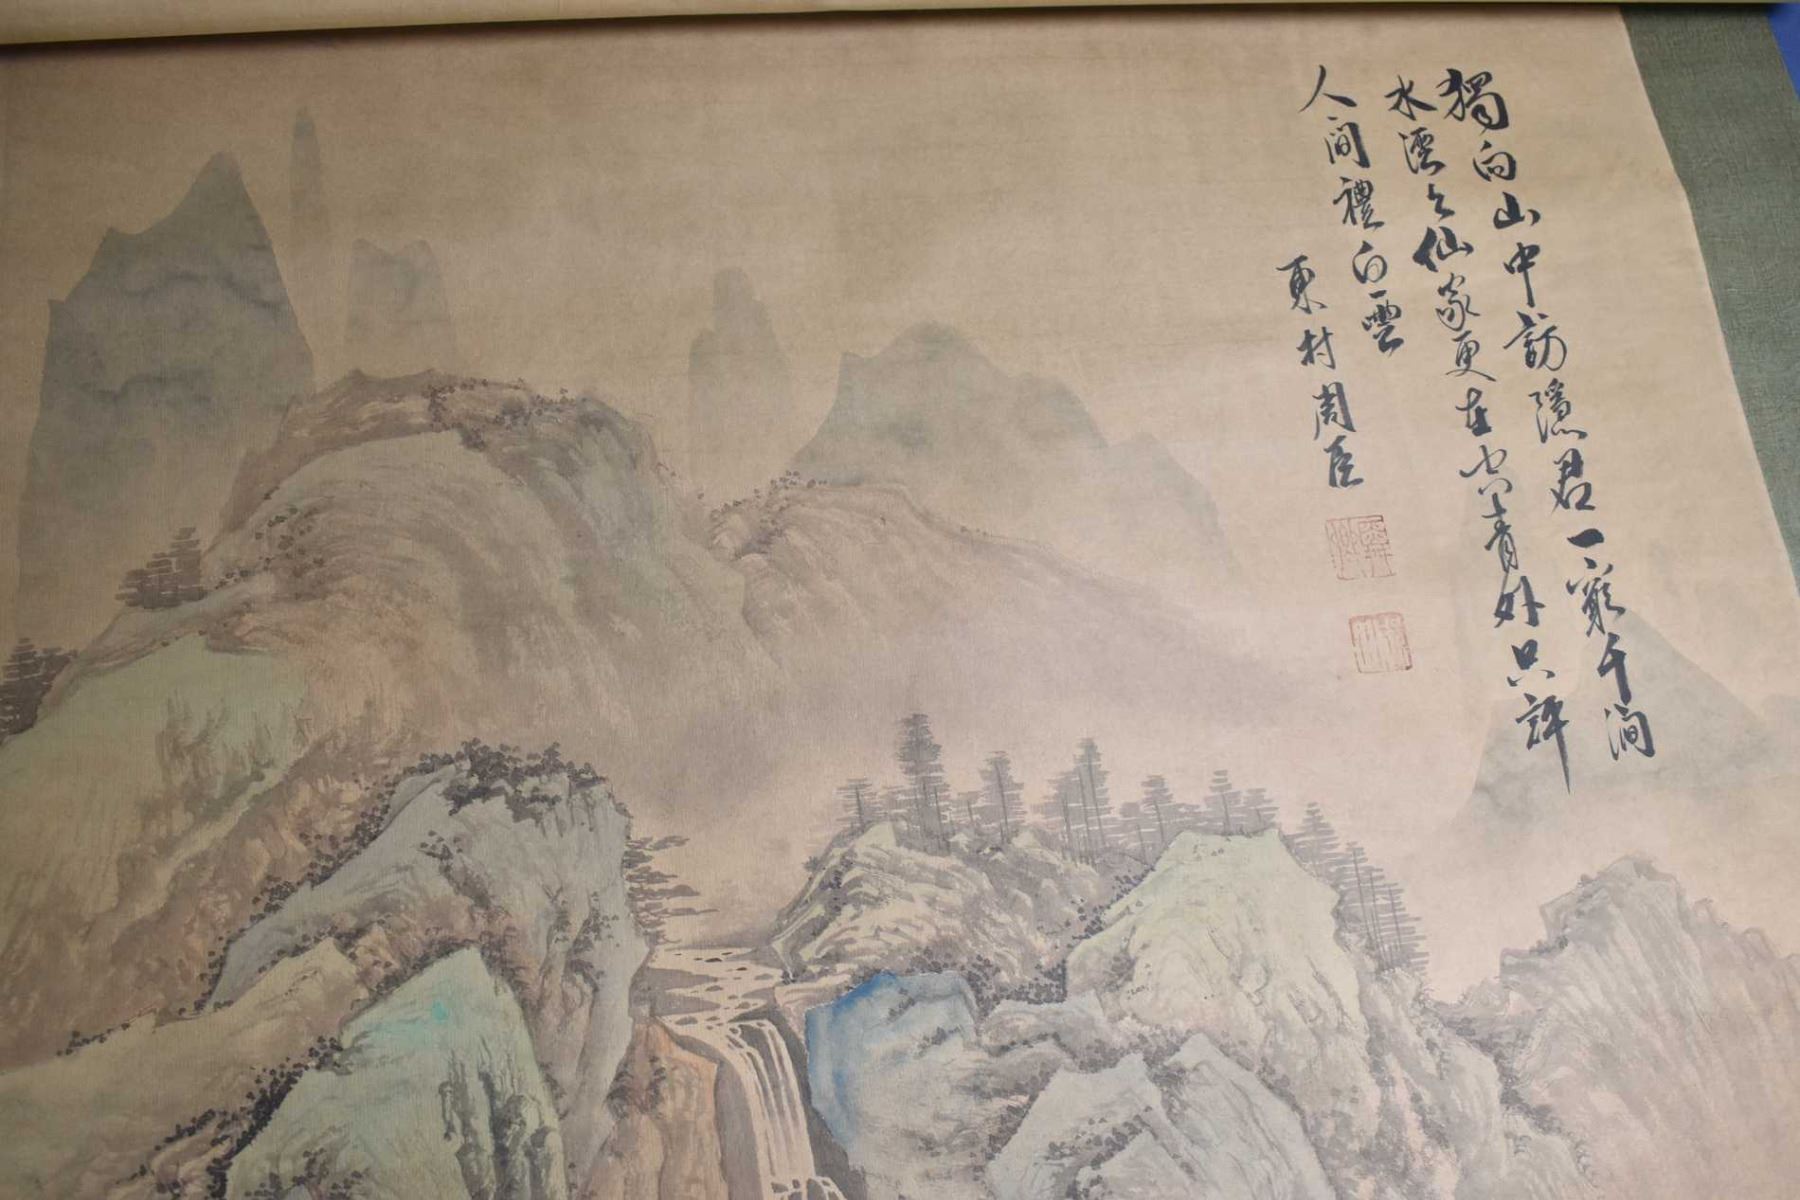 獨向山中訪隱君一窮千澗
水澐々仙家更在空青外只許
人間禮白雲
東村周臣